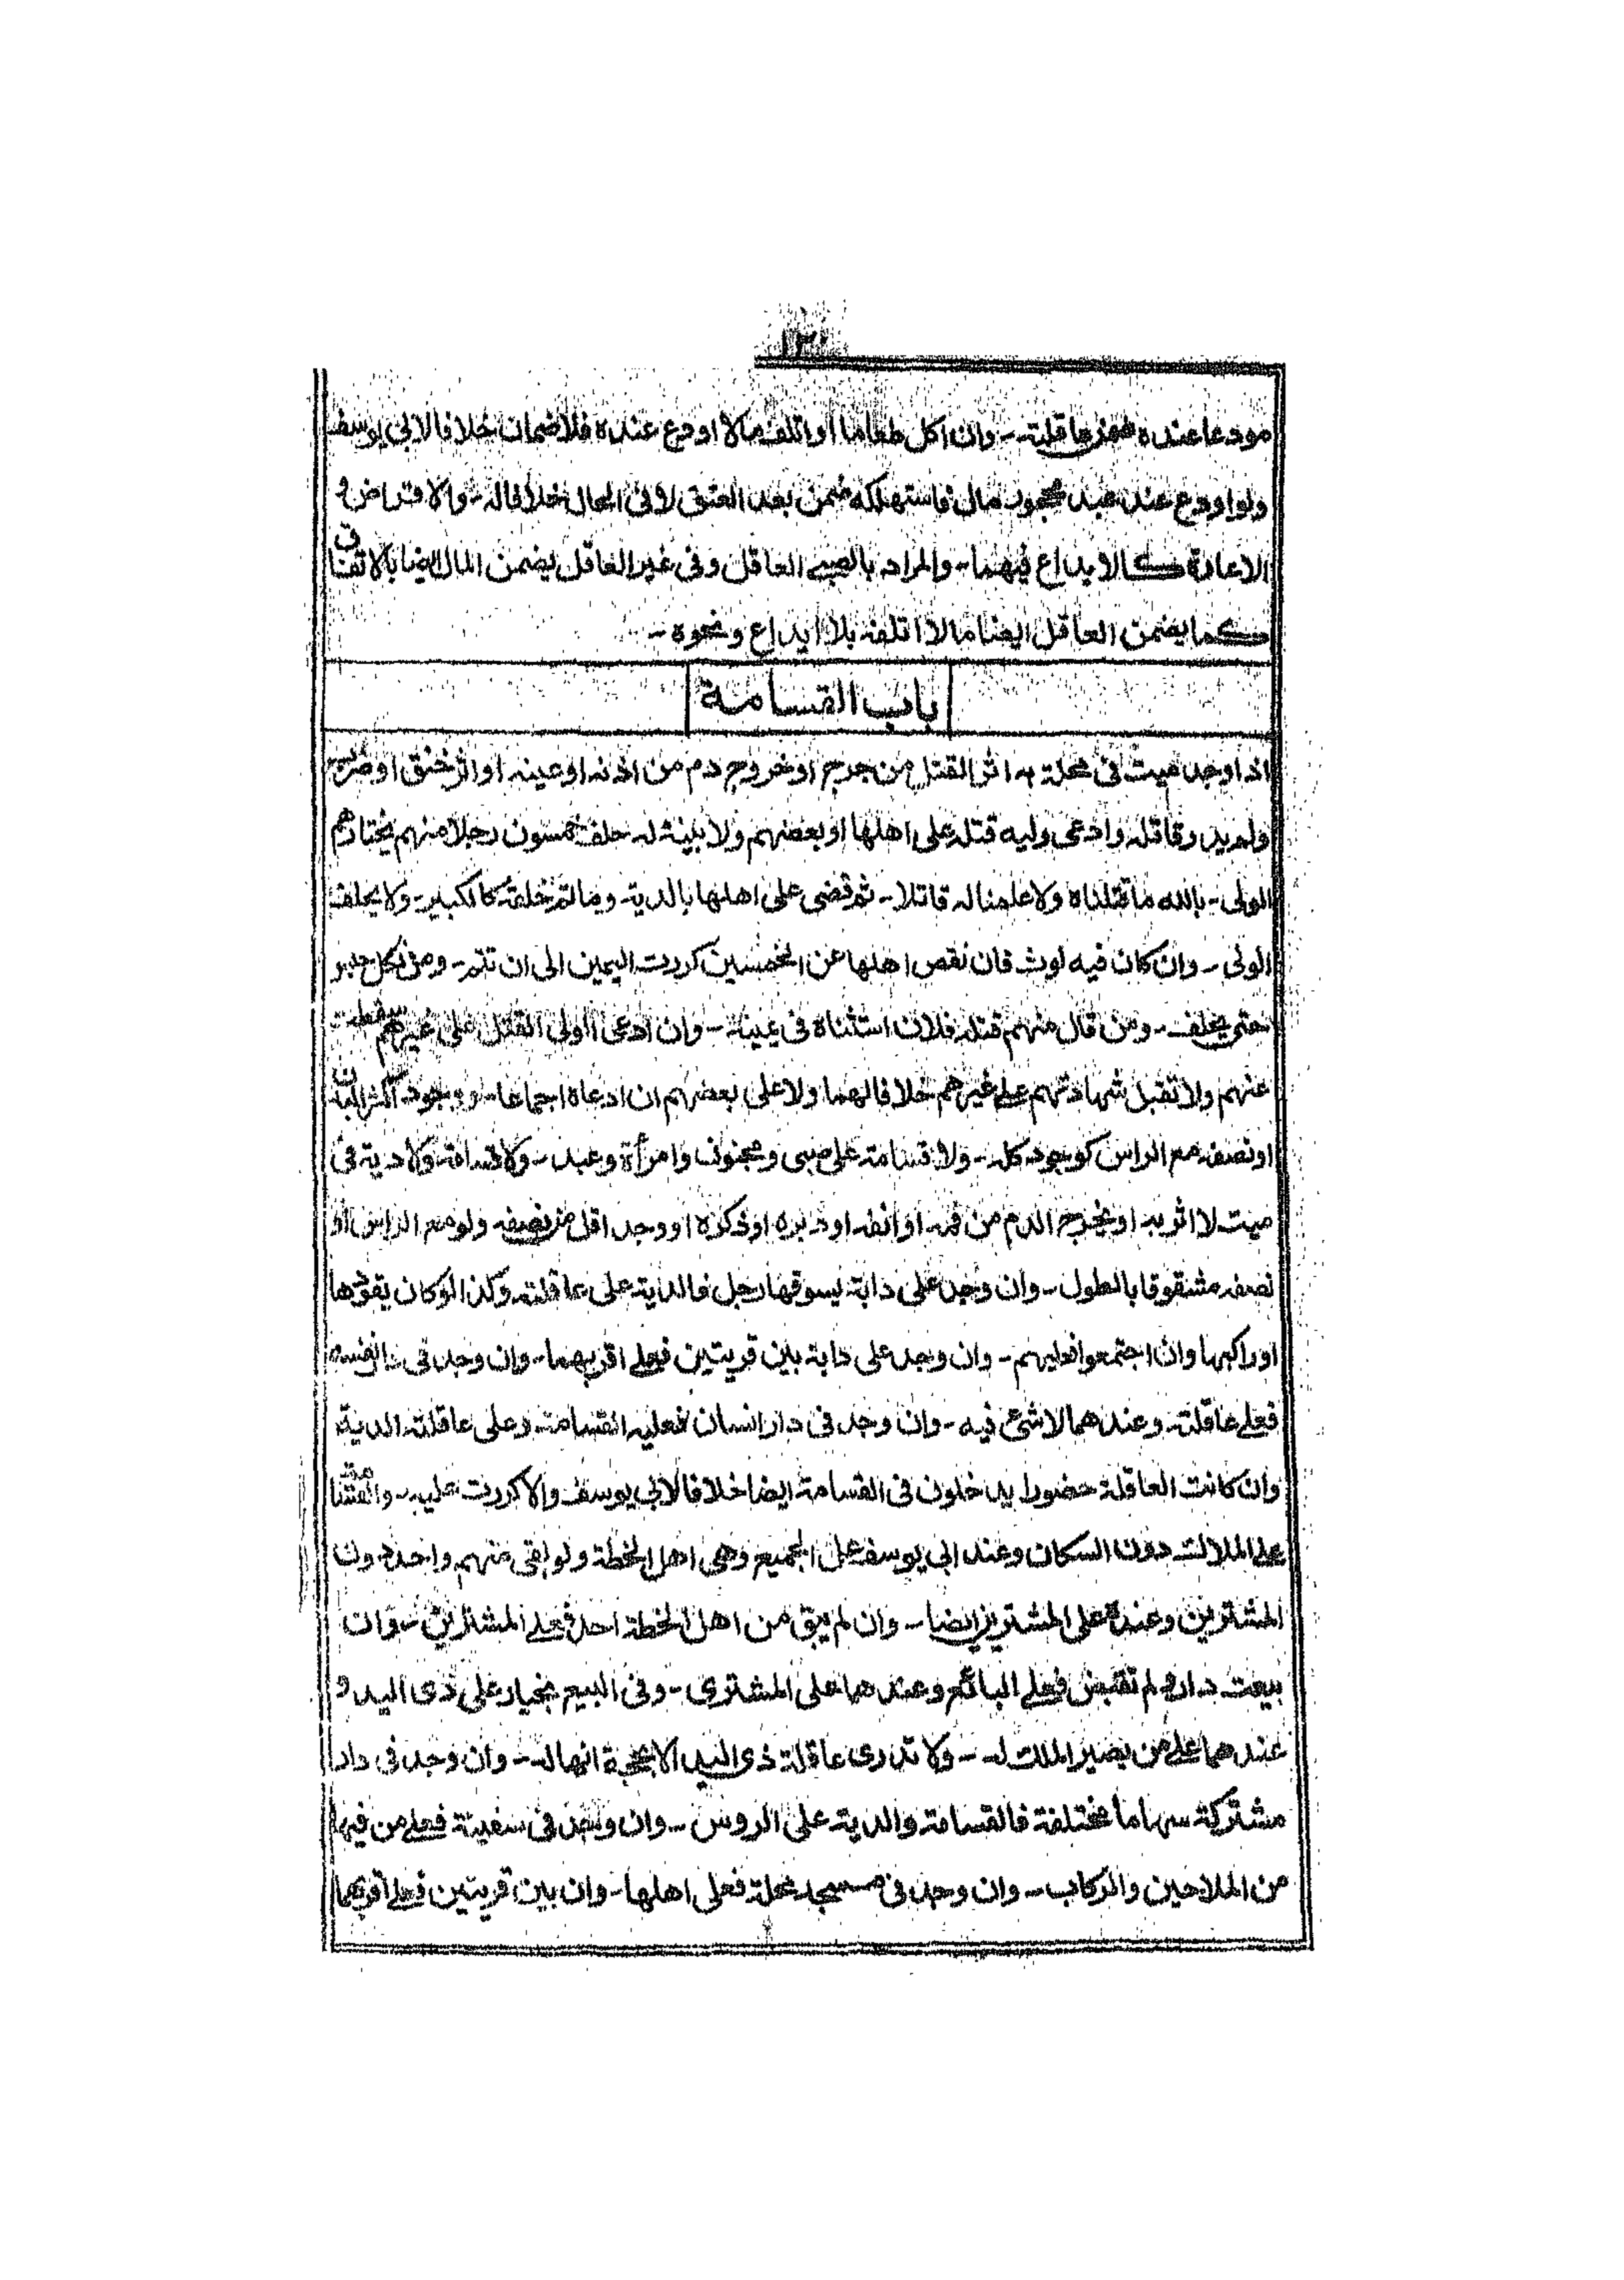 مودعا عنده ضمن عاقلته - وان اكل طعاما او اتلف مالا اودع عنده فلا ضمان خلافا لابى يوسف
ولو اودع عند عبد محجور مال فاستهلكه ضمن بعد العتق لا فى الحال خلافا له - والاقراض و
الاعارة كالايداع فيهما - والمراد بالصبى العاقل وفى غير العاقل يضمن المال ايضا بالاتفاق
كما يضمن العاقل ايضا مالا اتلفه بلا ايداع ونحوه -
باب القسامة
اذا وجد ميت فى محلة به اثر القتل من جرح او خروج دم من اذنه او عينه او اثر خنق او ضرب
ولم يدر قاتله وادعى وليه قتله على اهلها او بعضهم ولا بينة له حلف خمسون رجلا منهم يختارهم
الولى - بالله ما قتلناه ولا علمنا له قاتلا - ثم قضى على اهلها بالدية - وما تم خلقه كالكبير - ولا يحلف
الولى - وان كان فيه لوث فان نقص اهلها عن الخمسين كررت اليمين الى ان تتم - ومن نكل حبس
حتى يحلف - ومن قال منهم قتله فلان استثناه فى يمينه - وان ادعى الولى القتل على غيرهم سقطت
عنهم ولا تقبل شهادتهم على غيرهم خلافا لهما ولا على بعضهم ان ادعاه اجماعا - ووجود اكثر البدن
او نصفه مع الراس كوجود كله - ولا قسامة على صبى ومجنون وامرأة وعبد - ولا قسامة ولا دية فى
ميت لا اثر به او يخرج الدم من فمه او انفه او دبره او ذكره او وجد اقل من نصفه ولو مع الراس او
نصفه مشقوقا بالطول - وان وجد على دابة يسوقها رجل فالدية على عاقلته وكذا لو كان يقودها
او راكبها وان اجتمعوا فعليهم - وان وجد على دابة بين قريتين فعلى اقربهما - وان وجد فى دار نفسه
فعلى عاقلته وعندهما لا شئ فيه - وان وجد فى دار انسان فعليه القسامة وعلى عاقلته الدية
وان كانت العاقلة حضورا يدخلون فى القسامة ايضا خلافا لابى يوسف والا كررت عليه - والقسامة
على الملاك دون السكان وعند ابى يوسف على الجميع وهى اهل الخطة ولو بقى منهم واحد دون
المشترين وعنده على المشترين ايضا - وان لم يبق من اهل الخطة احد فعلى المشترين - وان
بيعت دار ولم تقبض فعلى البائع وعندهما على المشترى - وفى البيع بخيار على ذى اليد و
عندهما على من يصير الملك له - ولا تدى عاقلة ذى اليد الا بحجة انها له - وان وجد فى دار
مشتركة سهاما مختلفة فالقسامة والدية على الروس - وان وجد فى سفينة فعلى من فيها
من الملاحين والركاب - وان وجد فى مسجد محلة فعلى اهلها - وان بين قريتين فعلى اقربهما